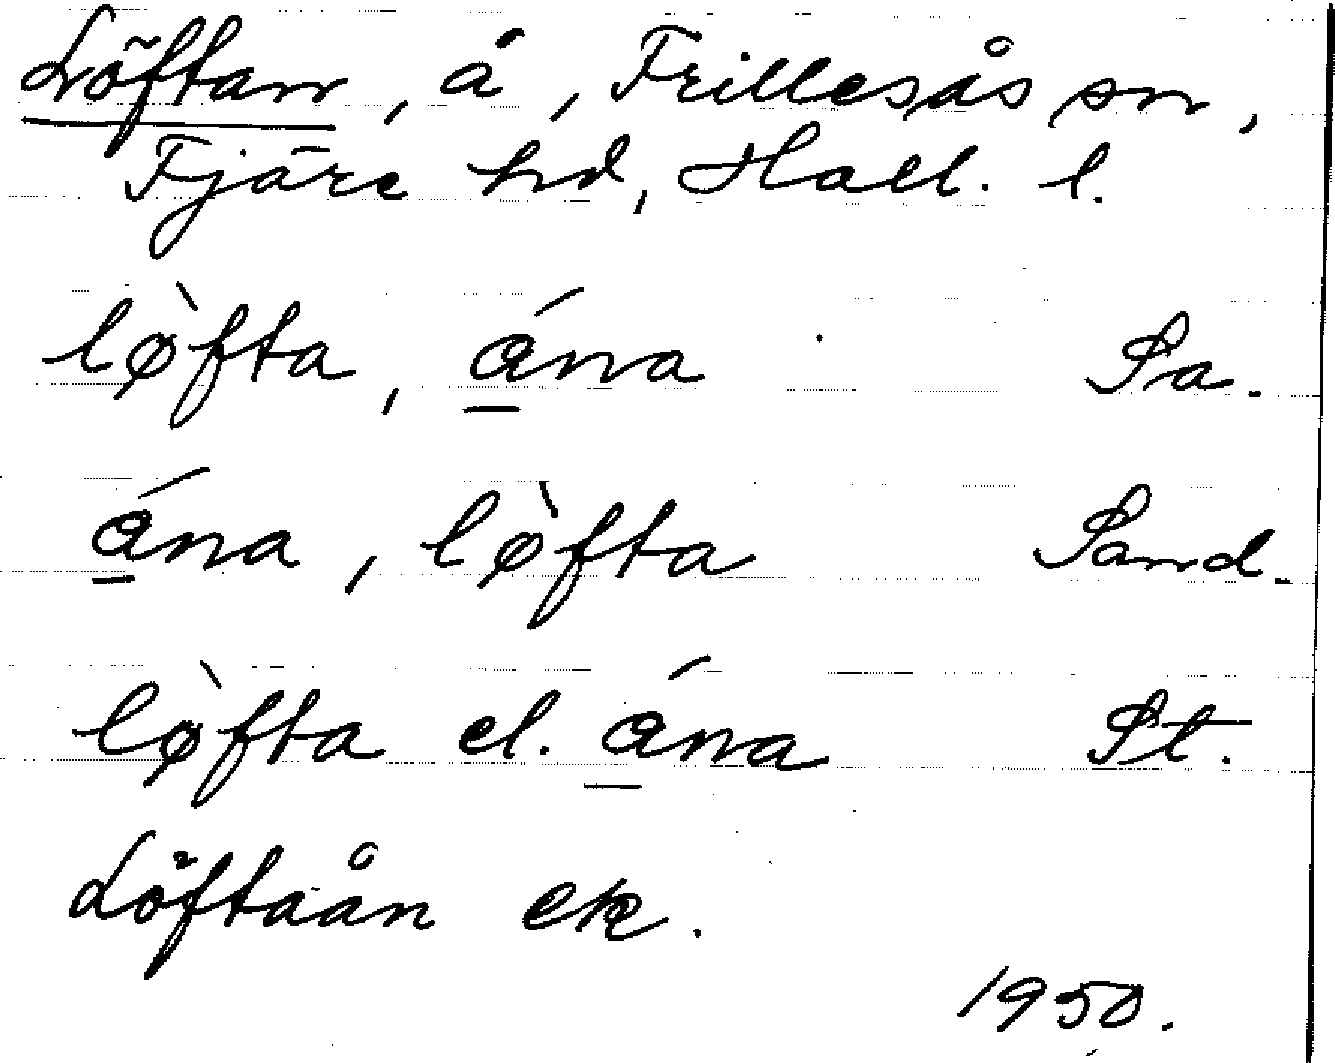 Löftan, å, Frillesås sn,
Fjäre hd, Hall. l.
lø̀fta, á̲na Sa.
á̲na, lø̀fta Sand.
lø̀fta el. á̲na St.
Löftaån ek.
1950.